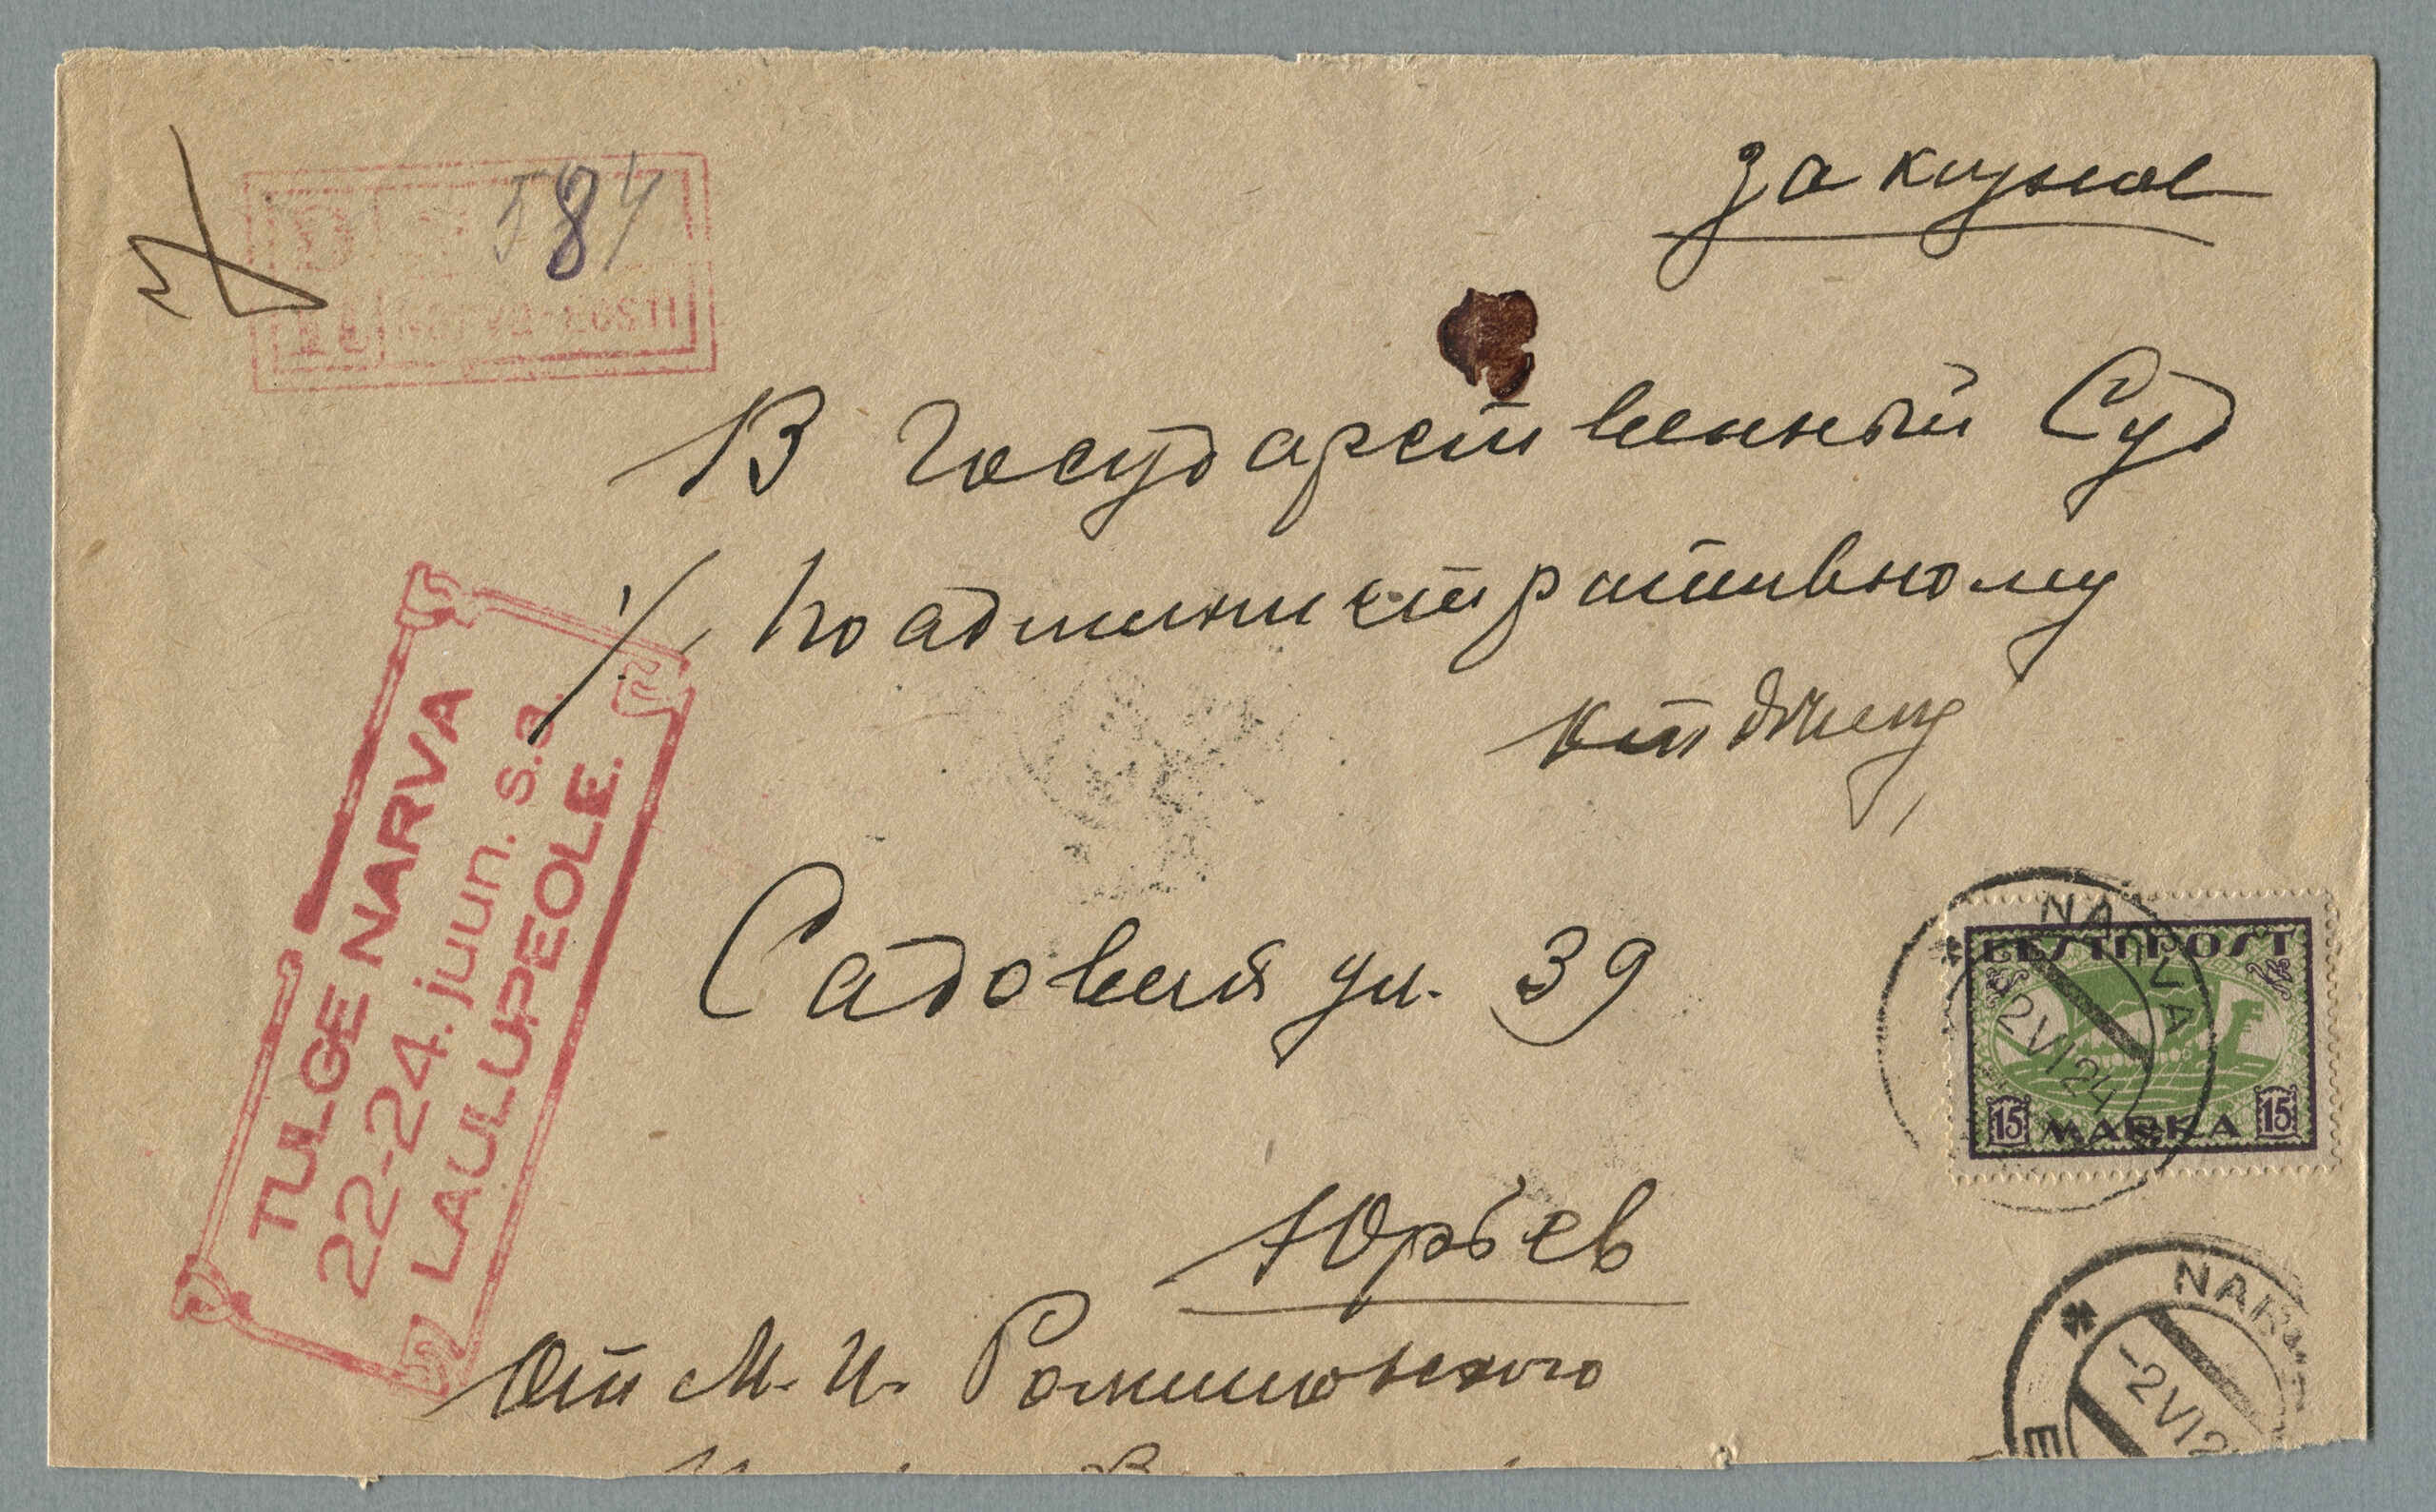 584
NARVA-EESTI
Заказное
В Государственный Суд
По административному
отделению
Садовая ул. 39
Юрьев
От М. И.
TULGE NARVA
22-24. juun. s.a.
LAULUPEOLE.
NARVA
EESTI POST
-2 VI 24
15 MARKA 15
NARV
-2 VI 2
E